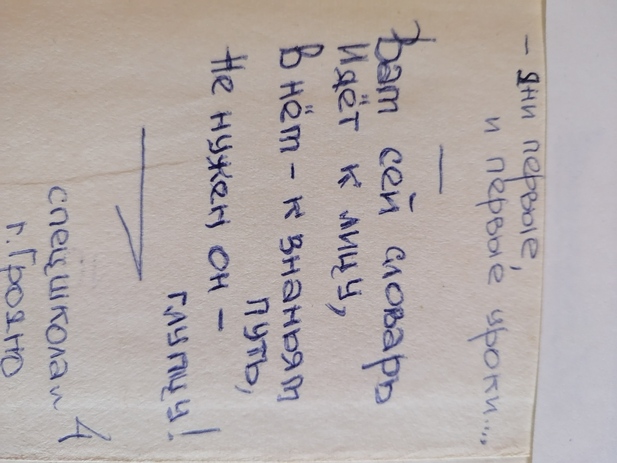 — дни первые,
и первые уроки...
—
Вам сей словарь
Идёт к лицу,
В нём – к знаньям
путь,
Не нужен он –
глупцу!
спецшкола 4
г. Гродно